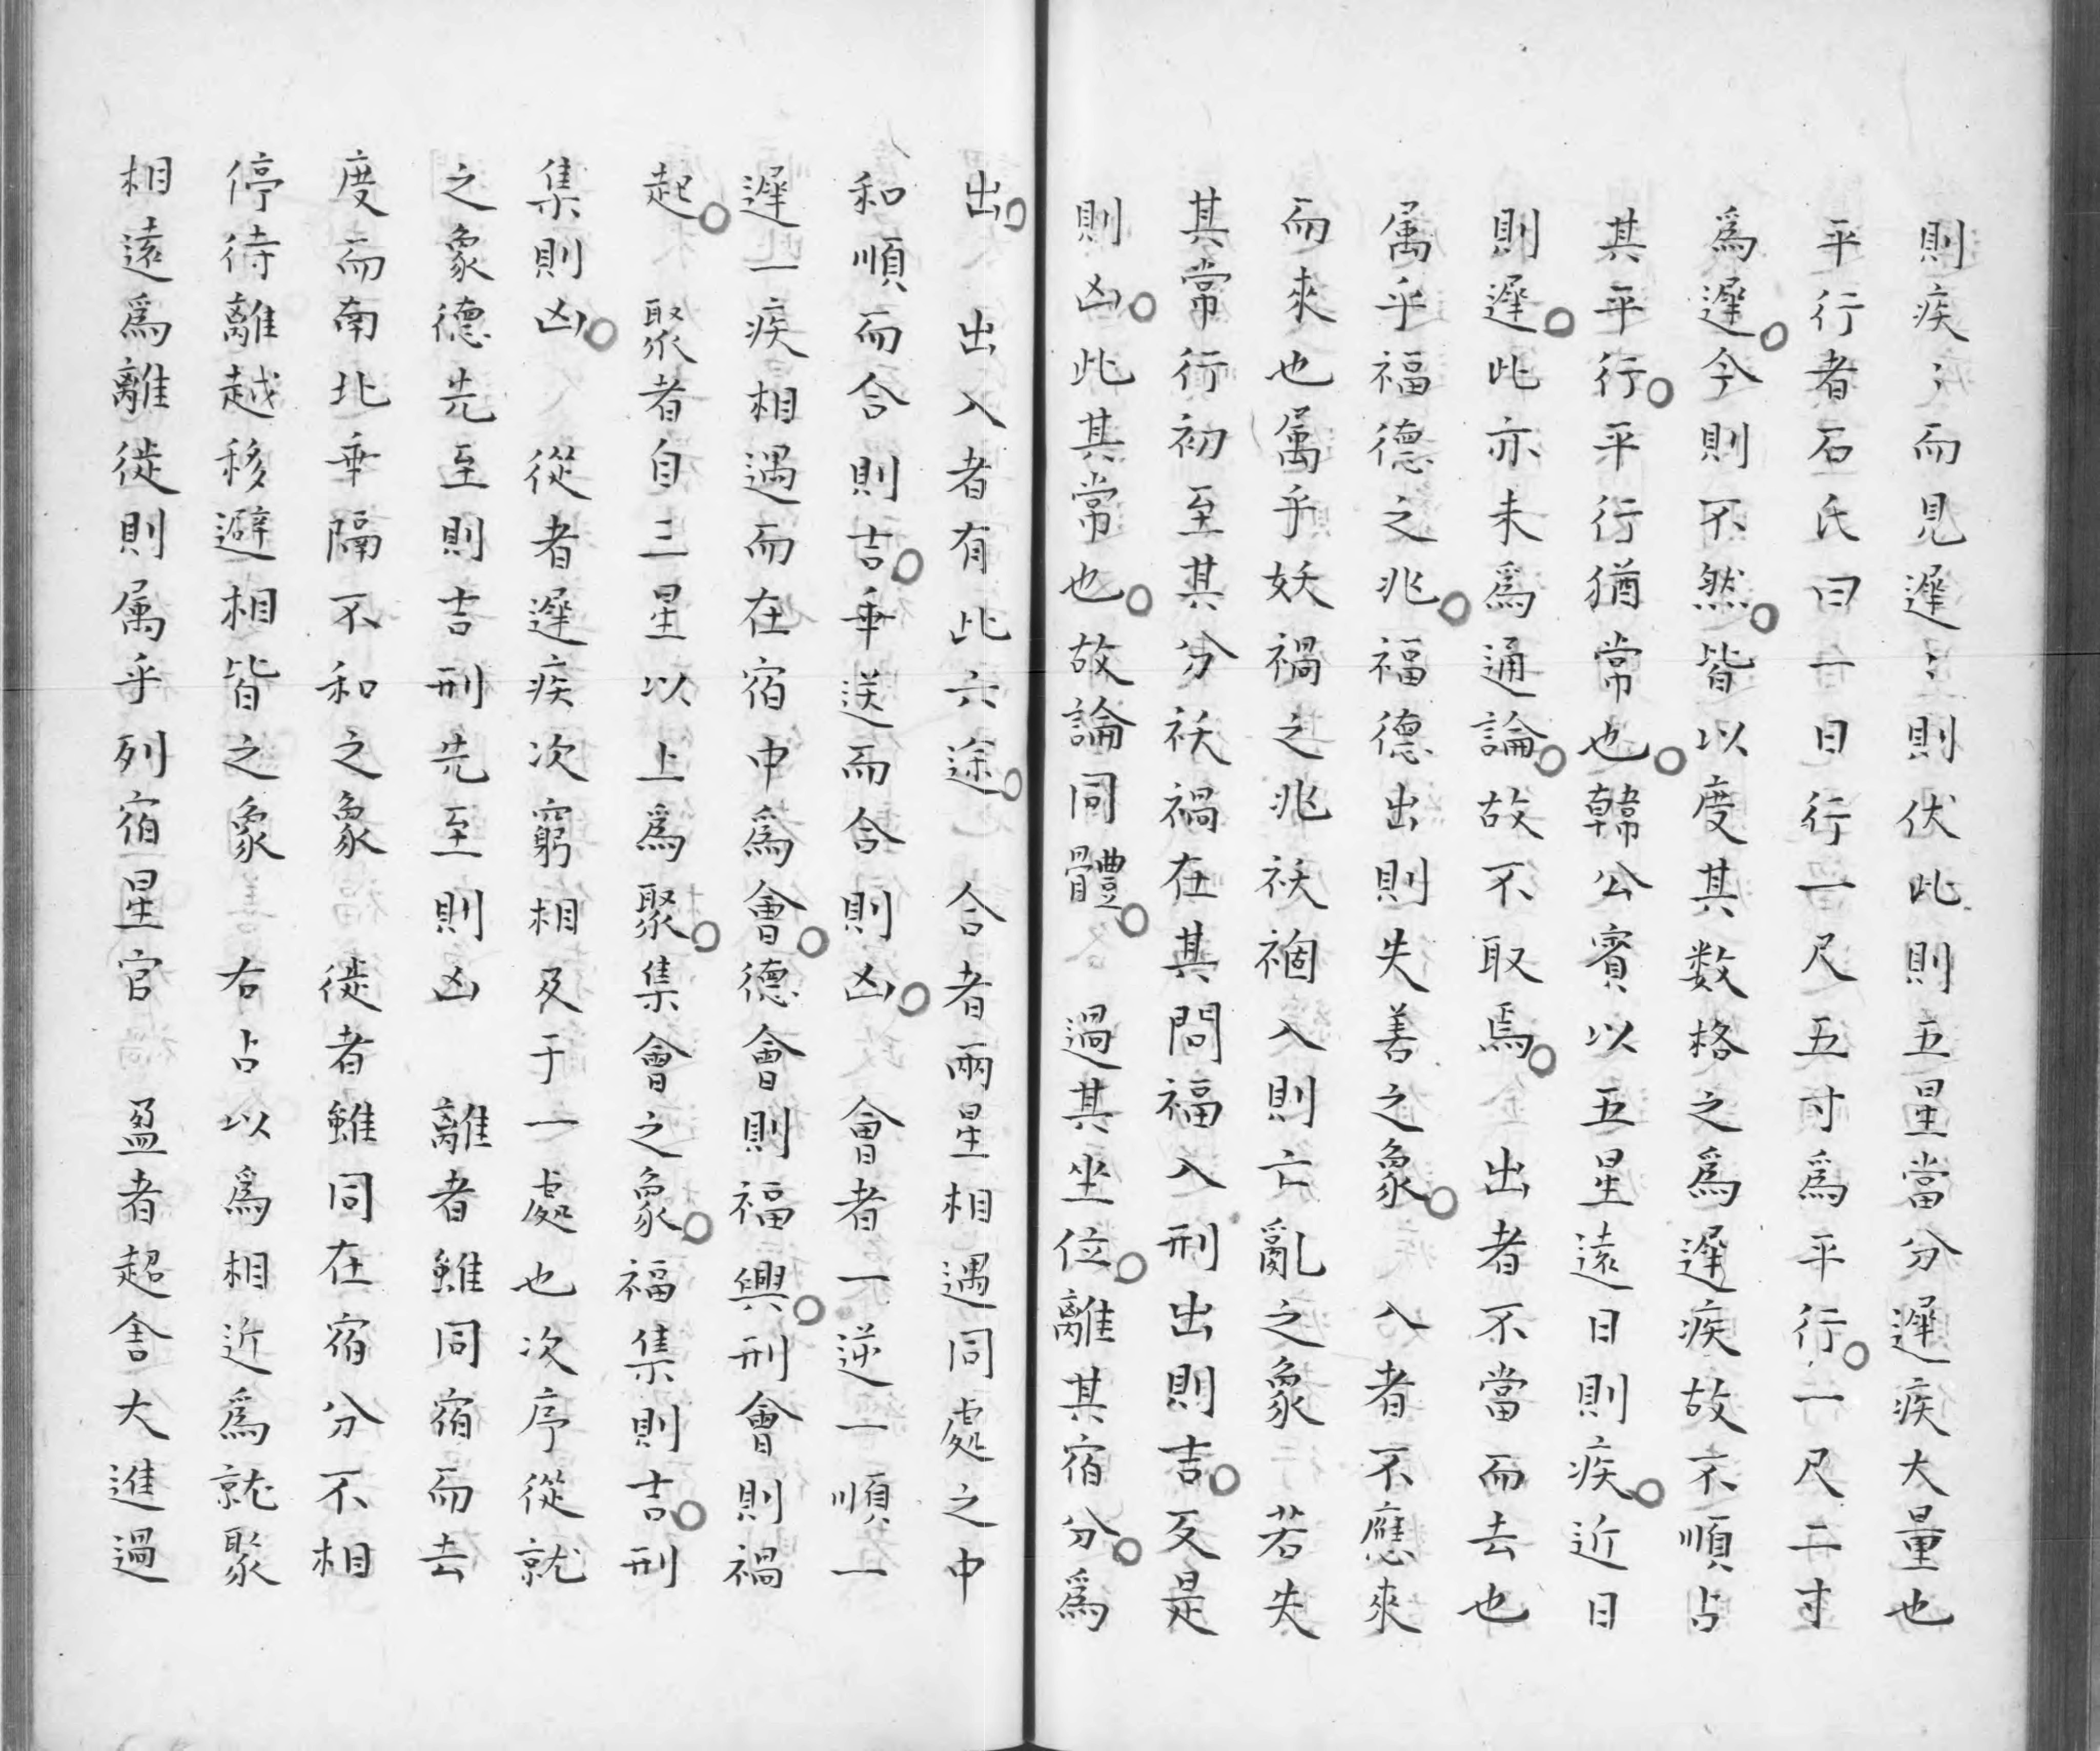 則疾〻而見遲〻則伏此則五星當分遲疾大量也
平行者石氏曰一日行一尺五寸爲平行。一尺二寸
爲遲。今則不然。皆以度其数格之爲遲疾故不順占
其平行。平行猶常也。韓公賓以五星遠日則疾。近日
則遲。此亦未爲通論。故不取焉。　出者不當而去也
属乎福德之兆。福德出則失善之象。　入者不應來
而來也属乎妖禍之兆祅祻入則亡亂之象　若失
其常行初至其分祅禍在其問福入刑出則吉。反是
則凶。此其常也。故論同體。　過其坐位。離其宿分。爲
出。　出入者有此六途。　合者兩星相遇同處之中
和順而合則吉。乖送而合則凶。　會者一逆一順一
遲一疾相遇而在宿中爲會。德會則福興。刑會則禍
起。　聚者自三星以上爲聚。集會之象。福集則吉。刑
集則凶。　從者遲疾次窮相及于一處也次序從就
之象德先至則吉刑先至則凶　離者雖同宿而去
度而南北乖隔不和之象　徙者雖同在宿分不相
停待離越移避相皆之象　右占以爲相近爲就聚
相遠爲離徙則属乎列宿星官　盈者超舎大進過